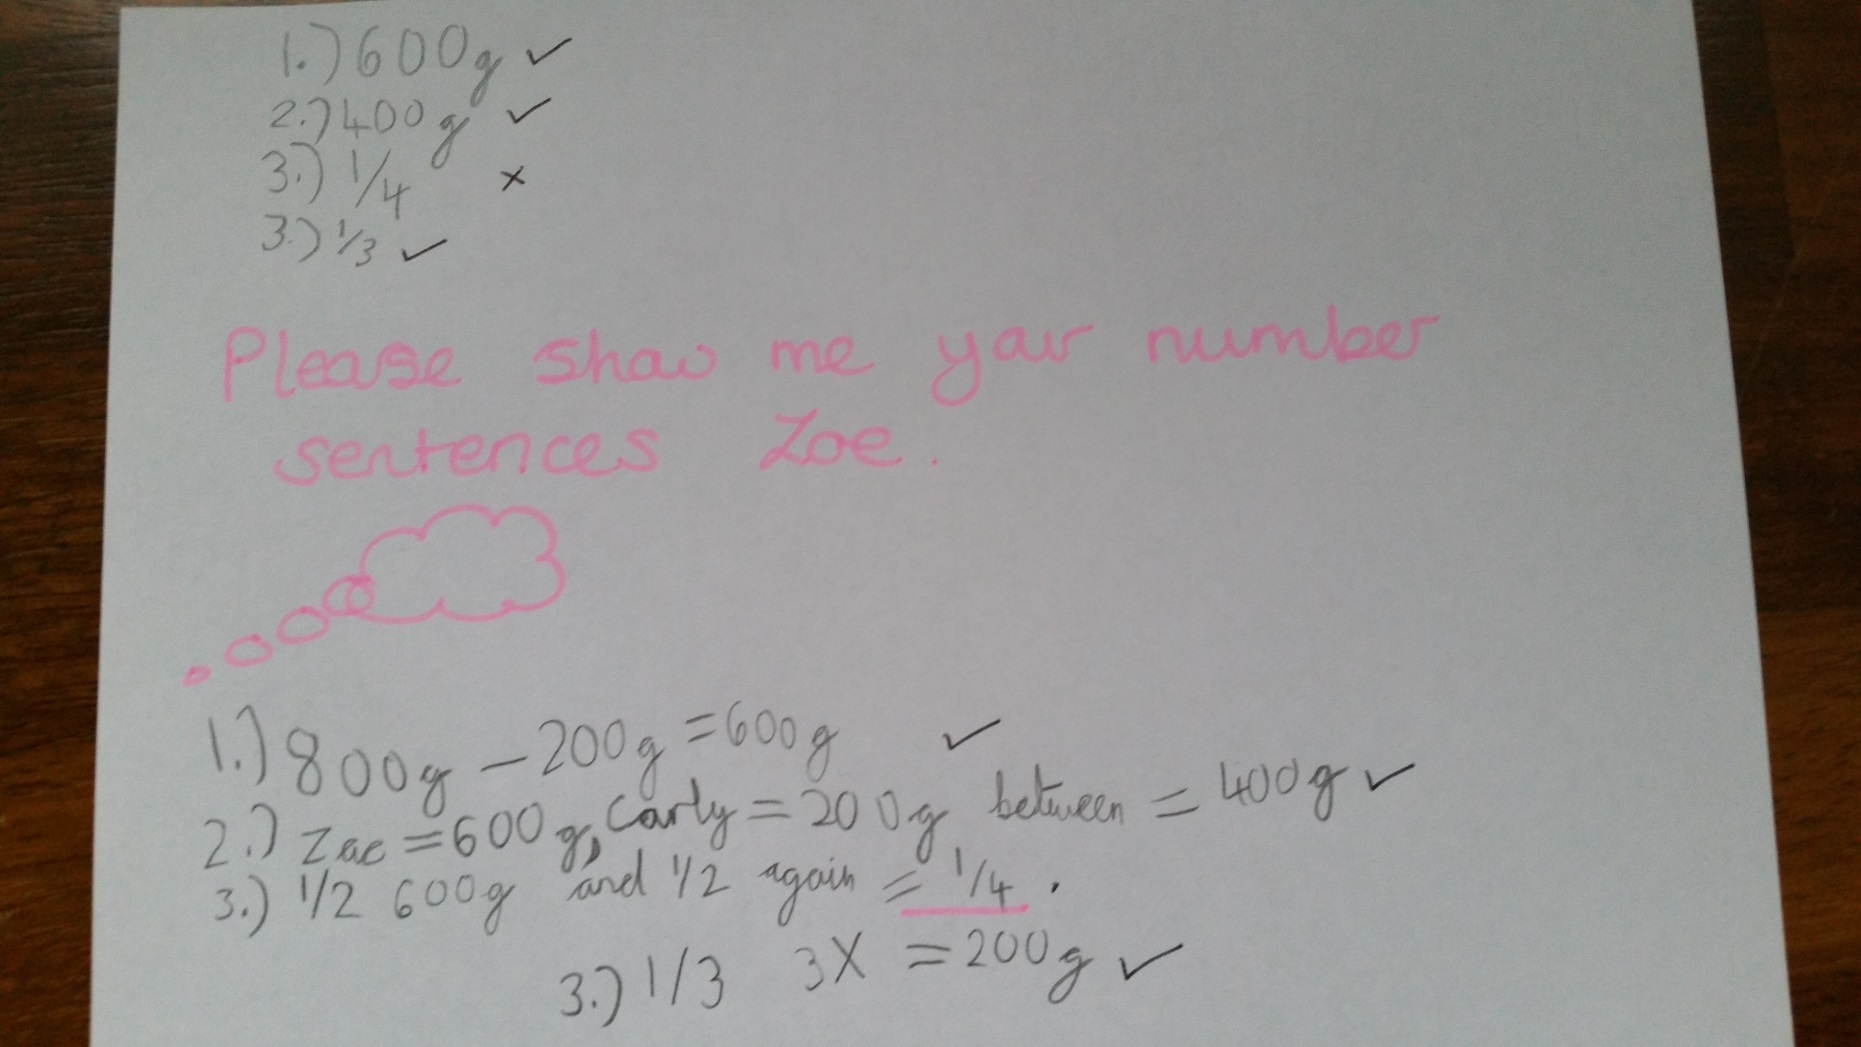 1.) 600g ✓
2.) 400g ✓
3.) 1/4 x
3.) 1/3 ✓
Please show me your number
sentences Zoe.
1.) 800g - 200g = 600g ✓
2.) Zac = 600g, Carly = 200g between = 400g ✓
3.) 1/2 600g and 1/2 again = 1/4.
3.) 1/3 3X = 200g ✓